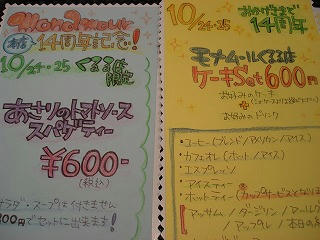 14周年記念!
10/24・25 くるる店限定
あさりのトマトソース
スパゲティー
¥600-
(税込)
サラダ・スープは付きません
200円でセットに出来ます!
10/24・25
おかげさまで
14周年
モナムールくるる店
ケーキSet 600円
お好みのケーキ
+
お好みのドリンク
・コーヒー(ブレンド/アメリカン/アイス)
・カフェオレ(ホット/アイス)
・エスプレッソ
・アイスティー
・ホットティー
アッサム/ダージリン/アールグ